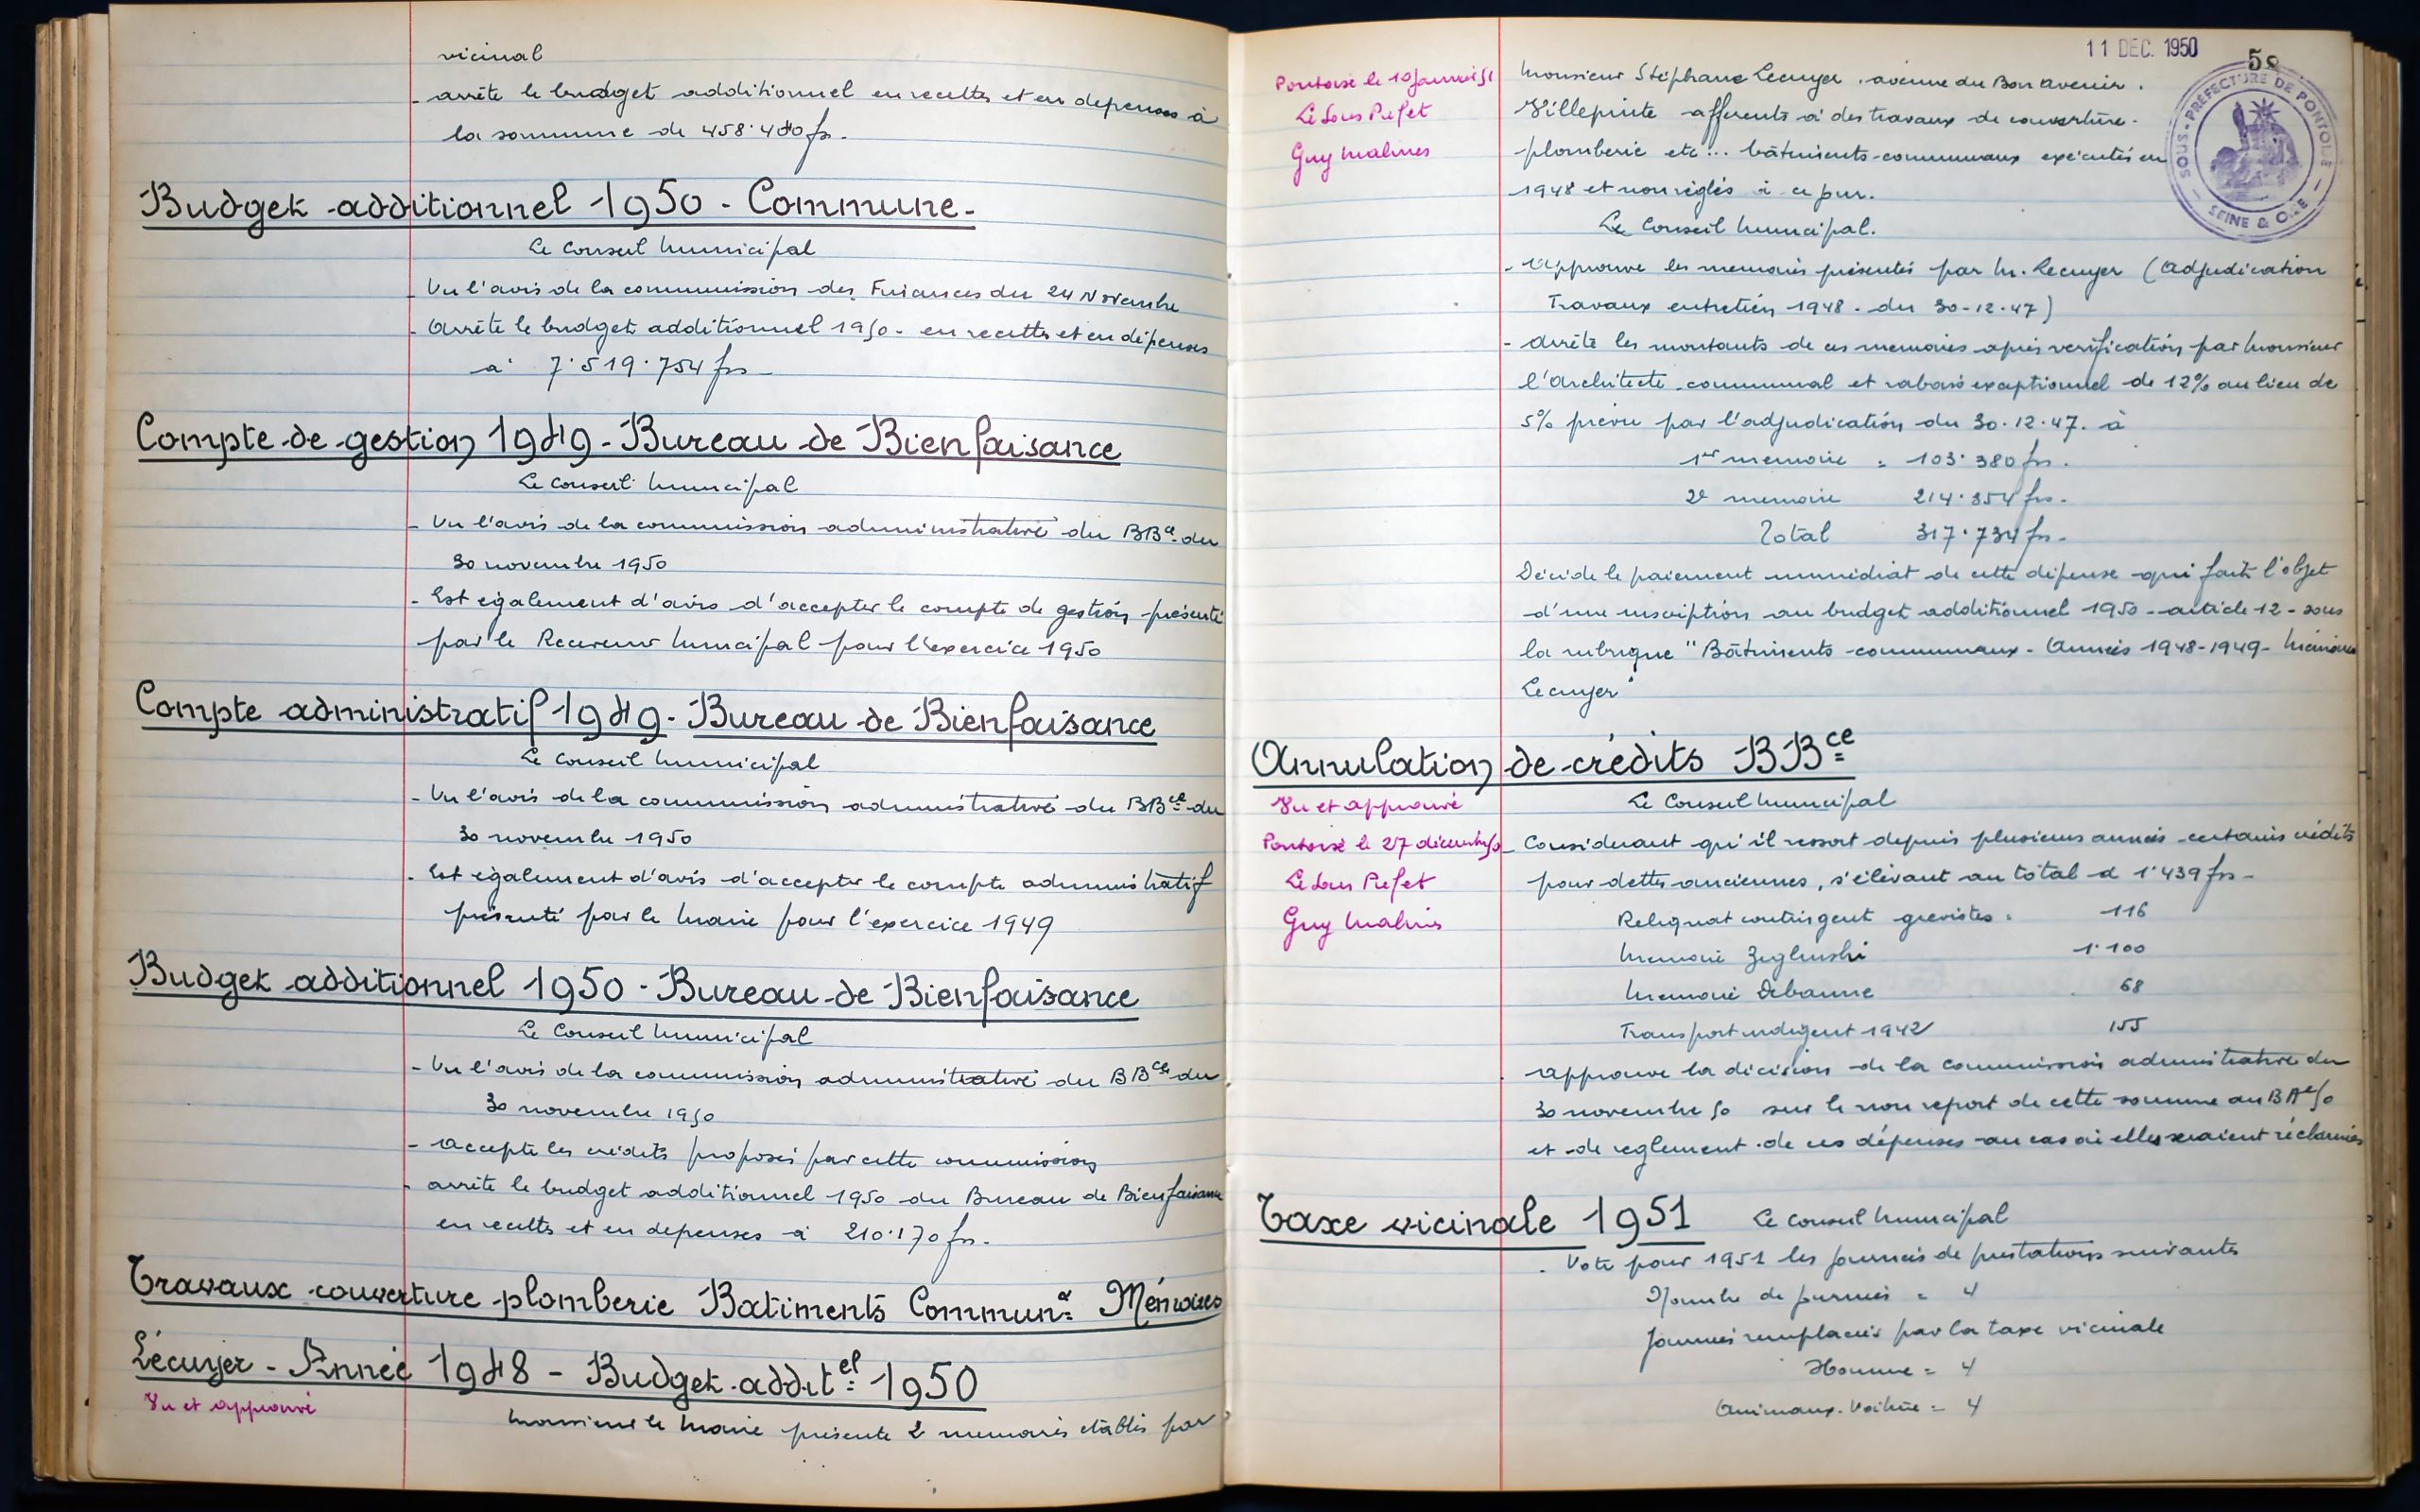 vicinal
- arrête le budget additionnel en recettes et en depenses à
la somme de 458.480 frs.
Budget additionnel 1950 - Commune.
Le Conseil Municipal
- Vu l'avis de la commission des Finances du 24 Novembre
- Arrête le budget additionnel 1950 - en recettes et en dépenses
à 7.519.754 frs
Compte de gestion 1949 - Bureau de Bienfaisance
Le Conseil Municipal
- Vu l'avis de la commission administrative du BBce du
30 novembre 1950
- Est également d'avis d'accepter le compte de gestion présenté
par le Receveur Municipal pour l'exercice 1950
Compte administratif 1949 - Bureau de Bienfaisance
Le Conseil Municipal
- Vu l'avis de la commission administrative du BBce du
30 novembre 1950
- Est également d'avis d'accepter le compte administratif
présenté par le Maire pour l'exercice 1949
Budget additionnel 1950 - Bureau de Bienfaisance
Le Conseil Municipal
- Vu l'avis de la commission administrative du BBce du
30 novembre 1950
- accepte les crédits proposés par cette commission
- arrête le budget additionnel 1950 du Bureau de Bienfaisance
en recettes et en depenses à 210.170 frs.
Travaux couverture plomberie Batiments Commun.x Mémoires
Lécuyer - Année 1948 - Budget addit.el 1950
Vu et approuvé
Monsieur le Maire présente 2 memoires etablis par
11 DEC. 1950
58
SOUS-PRÉFECTURE DE PONTOISE
SEINE & OISE
Pontoise le 10 Janvier 51
Le Sous Prefet
Guy Malines
Monsieur Stéphane Lecuyer. avenue du Bon Avenir.
Villepinte afferents à des travaux de couverture-
plomberie etc... bâtiments communaux executés en
1948 et non réglés à ce jour.
Le Conseil Municipal.
- Approuve les memoires présentés par M. Lecuyer (Adjudication
Travaux entretien 1948. du 30-12-47)
- Arrête les montants de ces memoires après verification par Monsieur
l'Architecte communal et rabais exceptionnel de 12% au lieu de
5% prévu par l'adjudication du 30.12.47. à
1er memoire = 103.380 frs.
2e memoire 214.354 frs.
Total 317.734 frs.
Décide le paiement immédiat de cette dépense qui fait l'objet
d'une inscription au budget additionnel 1950 - article 12 - sous
la rubrique "Bâtiments communaux - Années 1948-1949 - Mémoires
Lecuyer"
Annulation de crédits BBce
Vu et approuvé
Pontoise le 27 décembre 50
Le Sous Prefet
Guy Malines
Le Conseil Municipal
- Considerant qu'il ressort depuis plusieurs années certains crédits
pour dettes anciennes, s'élevant au total à 1.439 frs -
Reliquat contingent grevistes = 116
Memoire Zeglinski 1.100
Memoire Debanne 68
Transport indigent 1942 155
approuve la décision de la commission administrative du
30 novembre 50 sur le non report de cette somme au BAel 50
et de reglement de ces dépenses au cas où elles seraient réclamées
Taxe vicinale 1951
Le Conseil Municipal
- Vote pour 1951 les journées de prestations suivantes
Nombre de journées = 4
Journées remplacées par la taxe vicinale
Homme = 4
Animaux. Voiture = 4